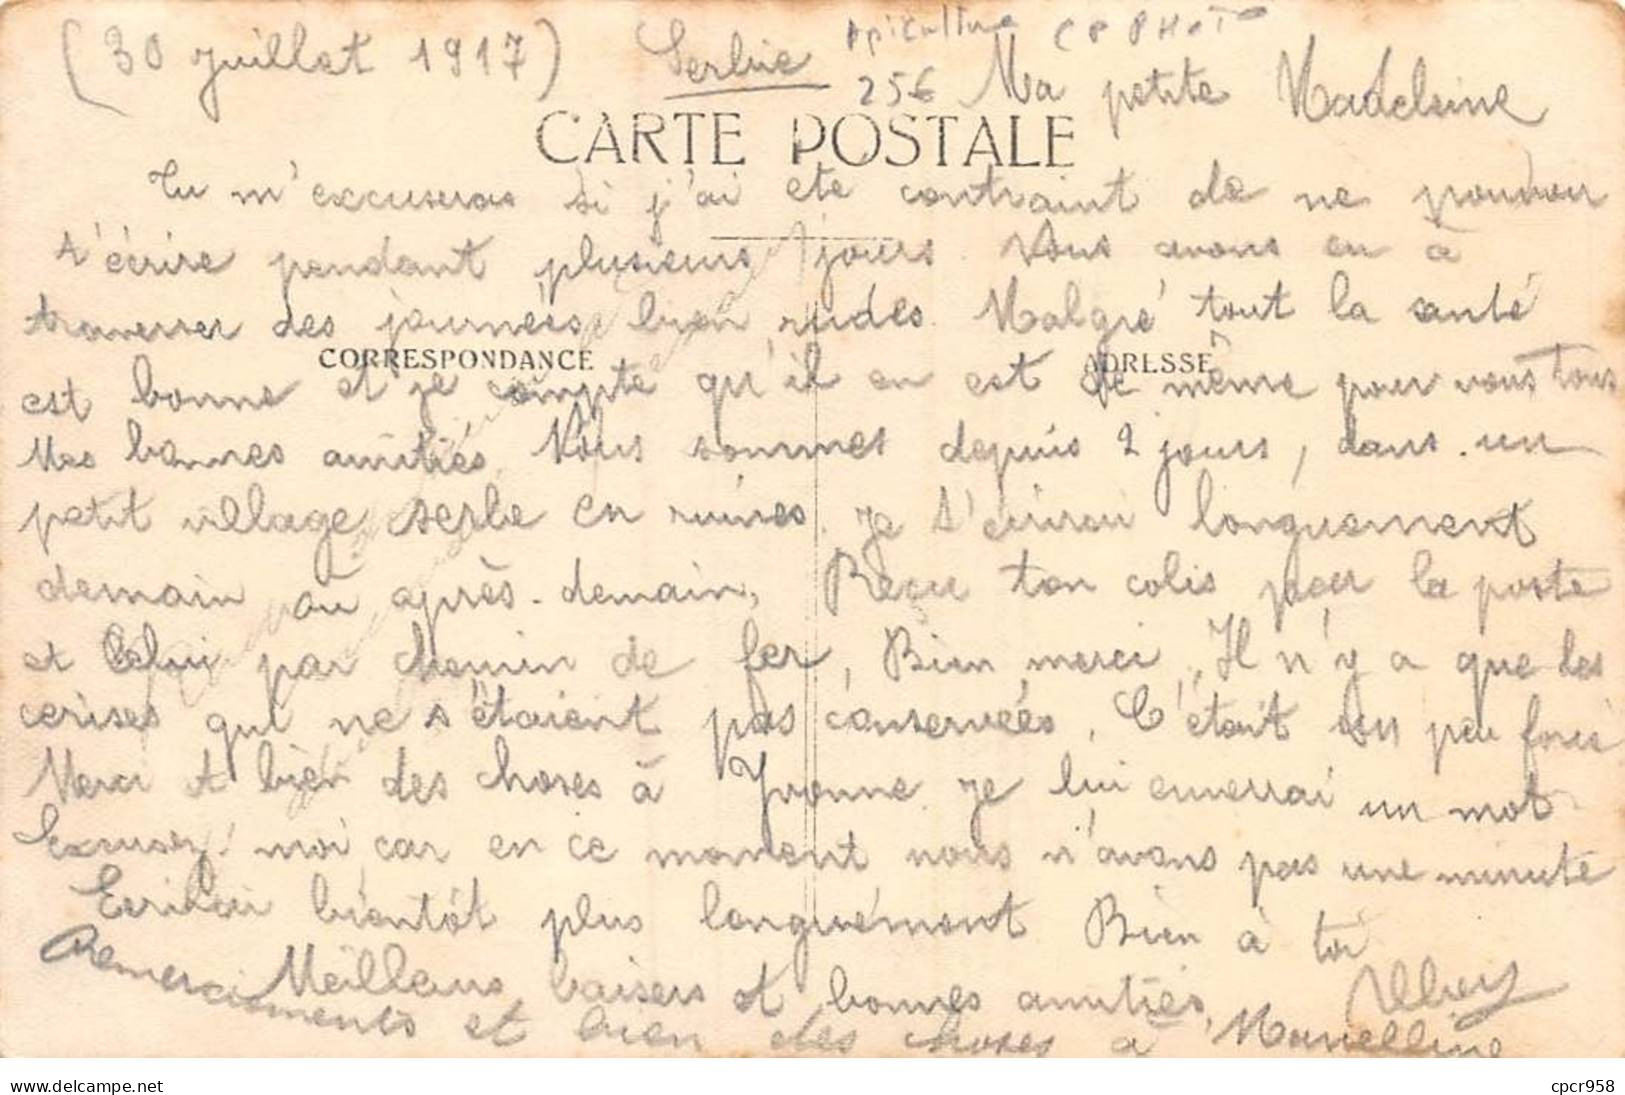 (30 Juillet 1917) Serbie Apiculture CP PHOTO
25€ Ma petite Madeleine
CARTE POSTALE
Tu m'excuseras si j'ai été contraint de ne pouvoir
t'écrire pendant plusieurs jours. Nous avons eu à
traverser des journées bien rudes. Malgré tout la santé
CORRESPONDANCE ADRESSE
est bonne et je compte qu'il en est de même pour vous tous
Mes bonnes amitiés. Nous sommes depuis 2 jours, dans un
petit village serbe en ruines. Je t'écrirai longuement
demain ou après-demain. Reçu ton colis par la poste
et celui par chemin de fer. Bien merci. Il n'y a que les
cerises qui ne s'étaient pas conservées. C'était un peu forcé
Merci et bien des choses à Yvonne. Je lui enverrai un mot
Excusez moi car en ce moment nous n'avons pas une minute
Ecrirai bientôt plus longuement Bien à toi
Meilleurs baisers et bonnes amitiés,
Remerciements et bien des choses à Marcelline
delcampe.net cpcr958